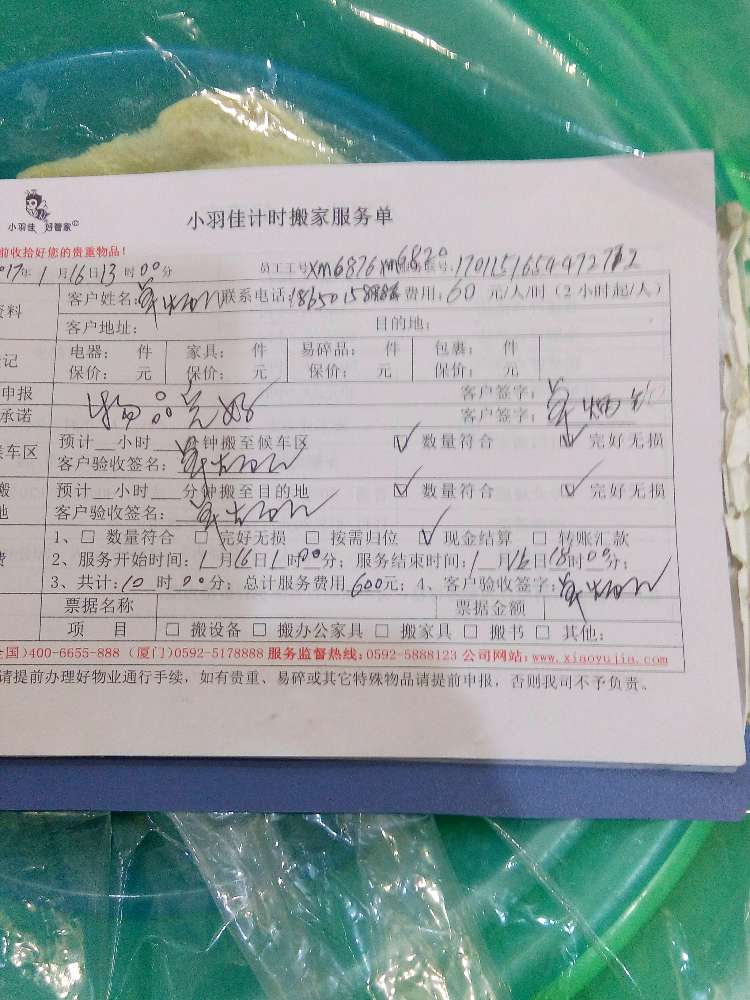 小羽佳 好管家©
小羽佳计时搬家服务单
前收拾好您的贵重物品!
017年1月16日13时00分 员工工号xm6876 xm6820 号:
资料 客户姓名: 联系电话: 费用:60元/人/时(2小时起/人)
客户地址: 目的地:
记 电器: 件 家具: 件 易碎品: 件 包裹: 件
保价: 元 保价: 元 保价: 元 保价: 元
申报 客户签字:
承诺 物品完好 客户签字:
候车区 预计__小时__分钟搬至候车区 ☑ 数量符合 ☑ 完好无损
客户验收签名:
搬 预计__小时__分钟搬至目的地 ☑ 数量符合 ☑ 完好无损
地 客户验收签名:
1、□ 数量符合 □ 完好无损 □ 按需归位 ☑ 现金结算 □ 转账汇款
费 2、服务开始时间:1月16日1时00分; 服务结束时间:1月16日18时00分;
3、共计:10时00分; 总计服务费用600元; 4、客户验收签字:
票据名称 票据金额
项 目 □ 搬设备 □ 搬办公家具 □ 搬家具 □ 搬书 □ 其他:
全国)400-6655-888 (厦门)0592-5178888 服务监督热线:0592-5888123 公司网站:www.xiaoyujia.com
请提前办理好物业通行手续,如有贵重、易碎或其它特殊物品请提前申报,否则我司不予负责。